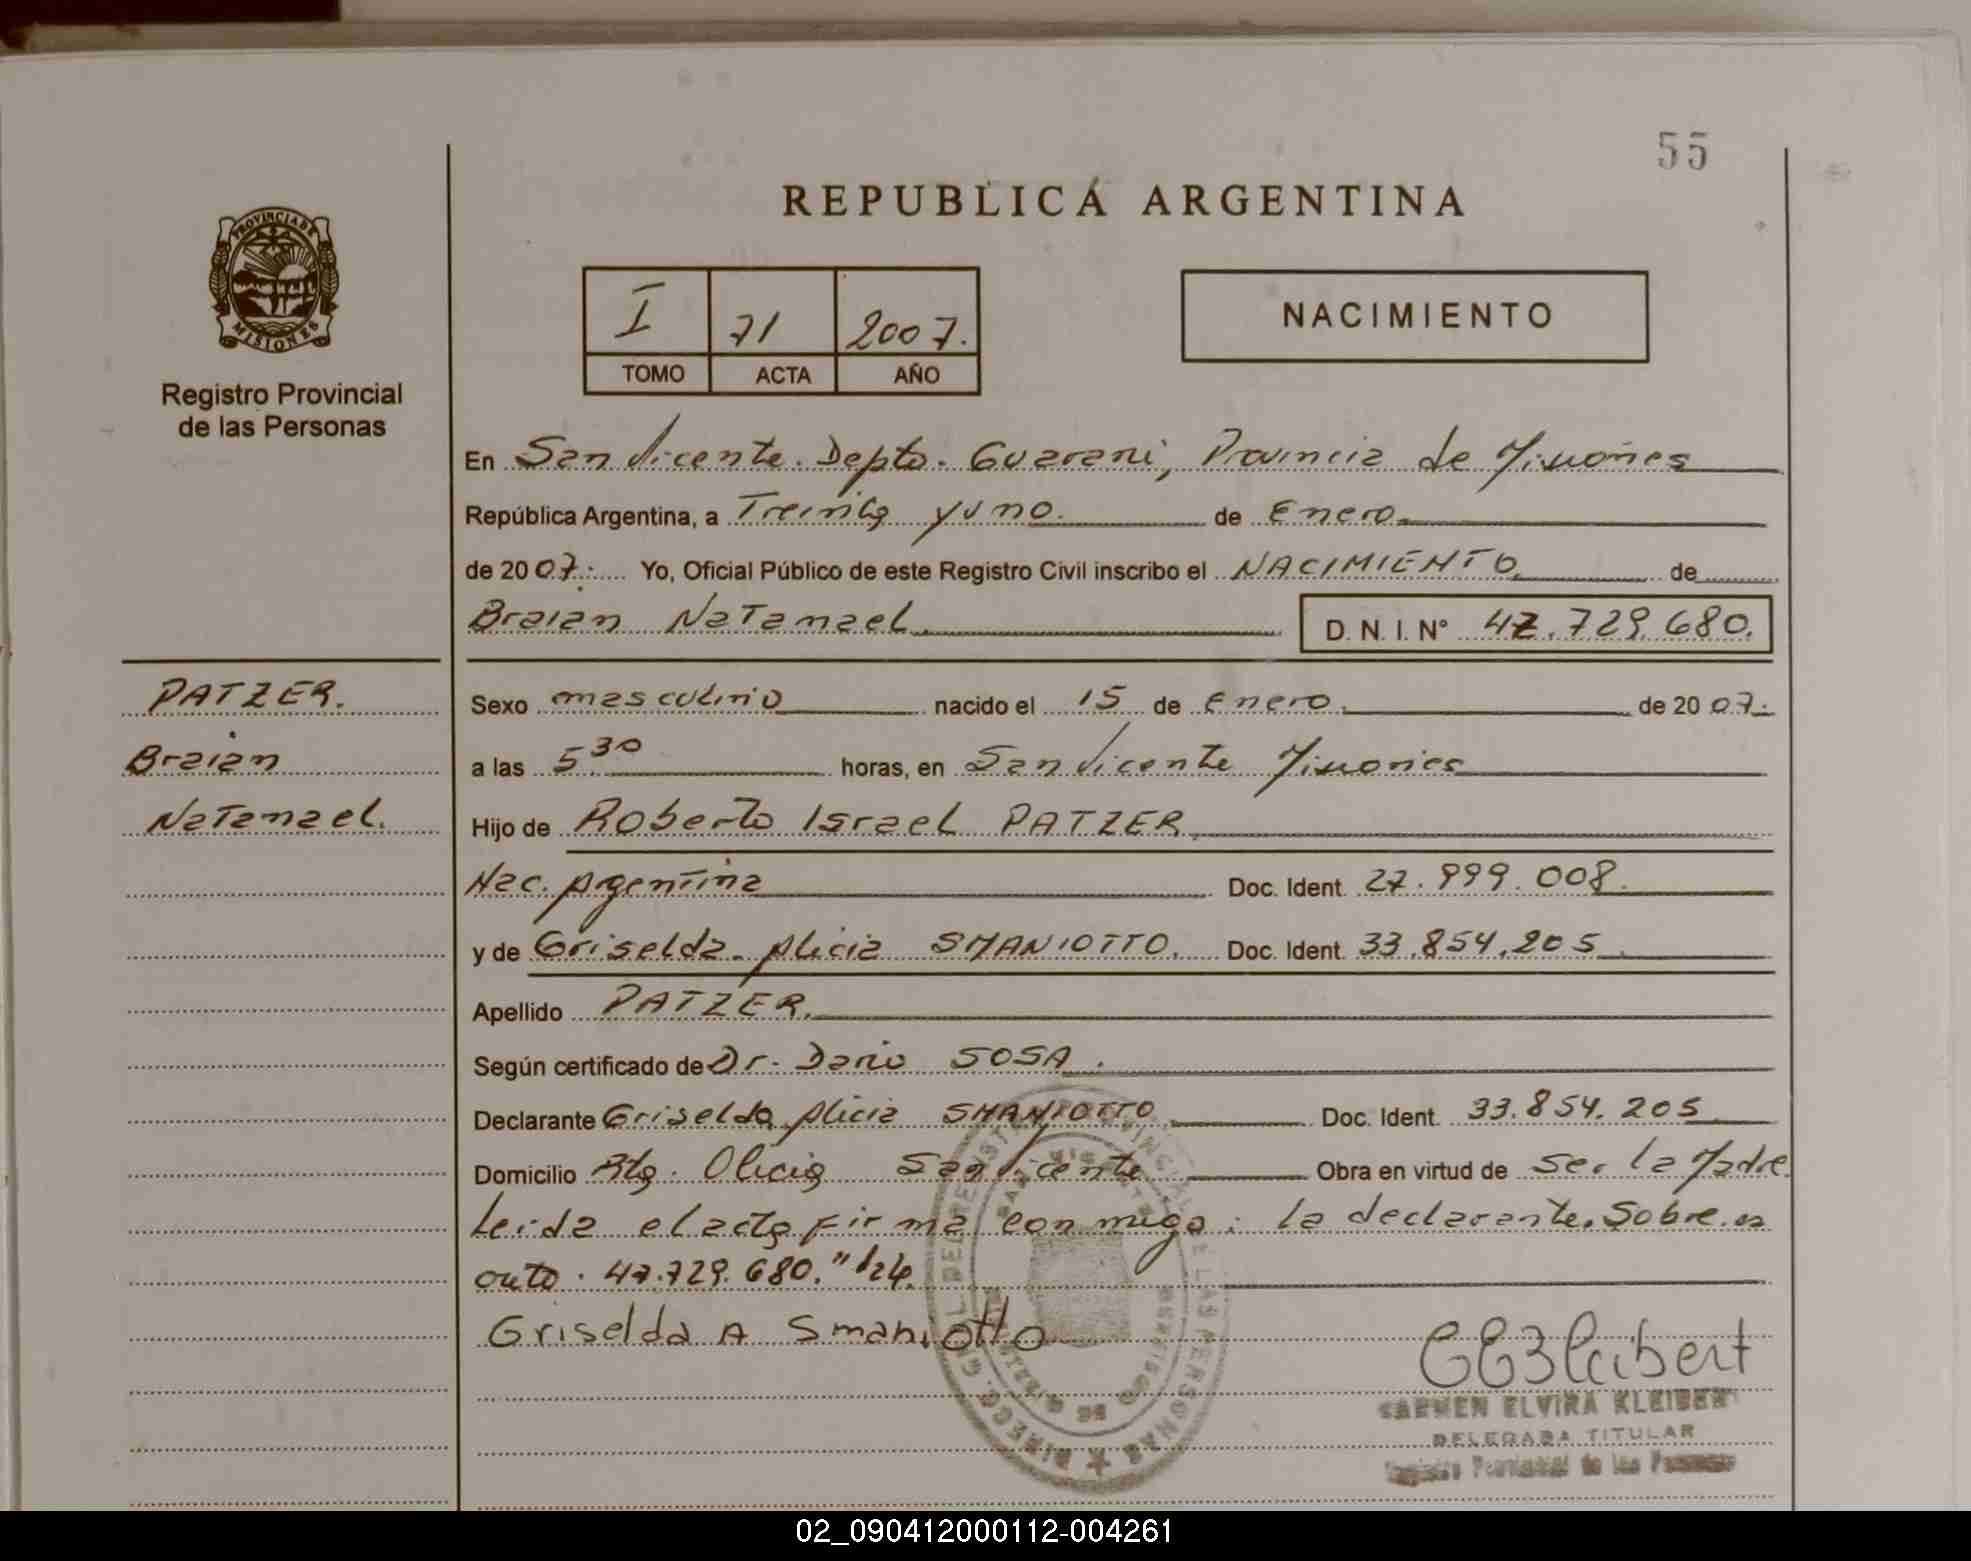 55
REPUBLICA ARGENTINA
PROVINCIA DE
MISIONES
Registro Provincial
de las Personas
I 71 2007.
TOMO ACTA AÑO
NACIMIENTO
En San Vicente. Depto. Guarani, Provincia de Misiones
República Argentina, a Treinta y uno. de Enero.
de 2007. Yo, Oficial Público de este Registro Civil inscribo el NACIMIENTO de
Braian Natanael. D. N. I. N° 47.729.680.
PATZER.
Braian
Natanael.
Sexo masculino nacido el 15 de Enero. de 2007.
a las 5.30 horas, en San Vicente Misiones
Hijo de Roberto Israel PATZER.
Nac. Argentina Doc. Ident. 27.999.008.
y de Griselda Alicia SMANIOTTO. Doc. Ident. 33.854.205
Apellido PATZER.
Según certificado de Dr. Dario SOSA.
Declarante Griselda Alicia SMANIOTTO Doc. Ident. 33.854.205
Domicilio San Vicente Obra en virtud de Ser la Madre.
Leida el acta firma conmigo: la declarante. Sobre
47.729.680."
Griselda A Smaniotto
CEKleibert
CARMEN ELVIRA KLEIBERT
DELEGADA TITULAR
Registro Provincial de las Personas
02_090412000112-004261